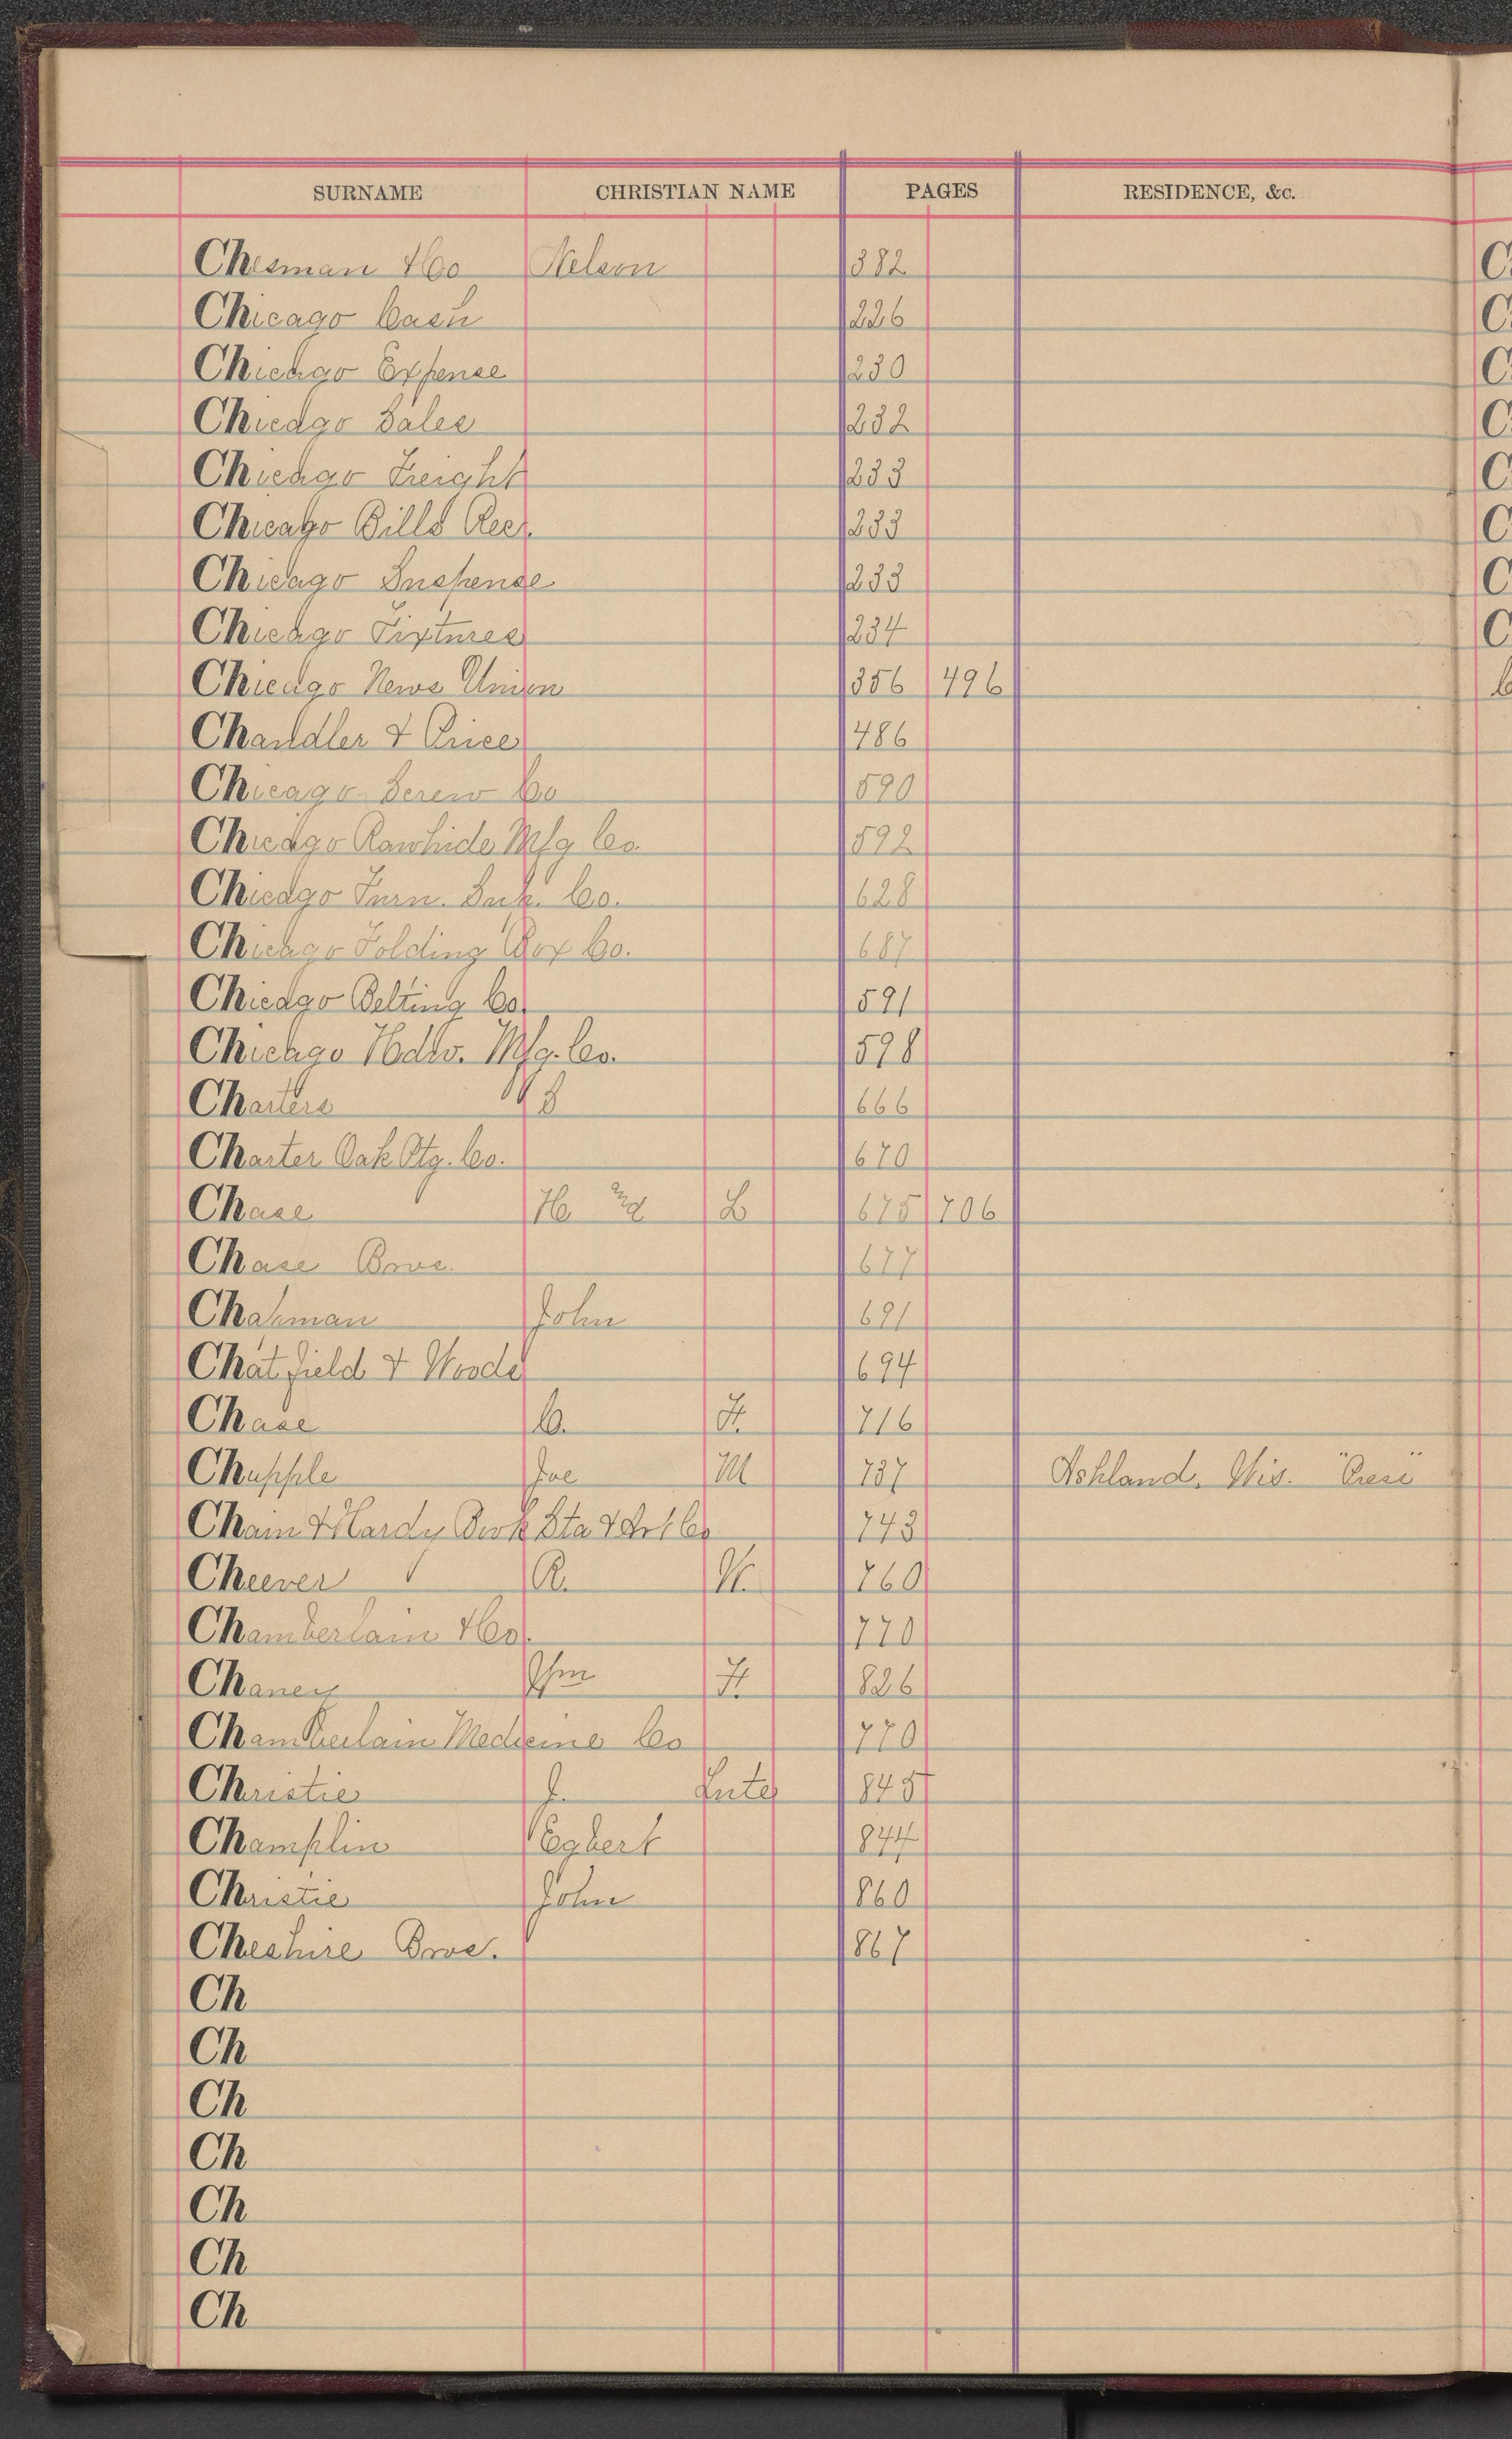 SURNAME CHRISTIAN NAME PAGES RESIDENCE, &c.
Chesman & Co Nelson 382
Chicago Cash 226
Chicago Expense 230
Chicago Sales 232
Chicago Freight 233
Chicago Bills Rec. 233
Chicago Suspense 233
Chicago Fixtures 234
Chicago News Union 356 496
Chandler & Price 486
Chicago Screw Co 590
Chicago Rawhide Mfg Co. 592
Chicago Furn. Co. 628
Chicago Folding Box Co. 687
Chicago Belting Co. 591
Chicago Hdw. Mfg. Co. 598
Charters 666
Charter Oak Ptg. Co. 670
Chase L 675 706
Chase Bros. 677
Chapman John 691
Chatfield & Woods 694
Chase C. F. 716
Chapple Joe M 737 Ashland, Wis. "Press"
Chain & Hardy Book Sta & Art Co 743
Cheever R. W. 760
Chamberlain & Co. 770
Chaney Wm F. 826
Chamberlain Medicine Co 770
Christie J. Luter 845
Champlin Egbert 844
Christie John 860
Cheshire Bros. 867
Ch
Ch
Ch
Ch
Ch
Ch
Ch